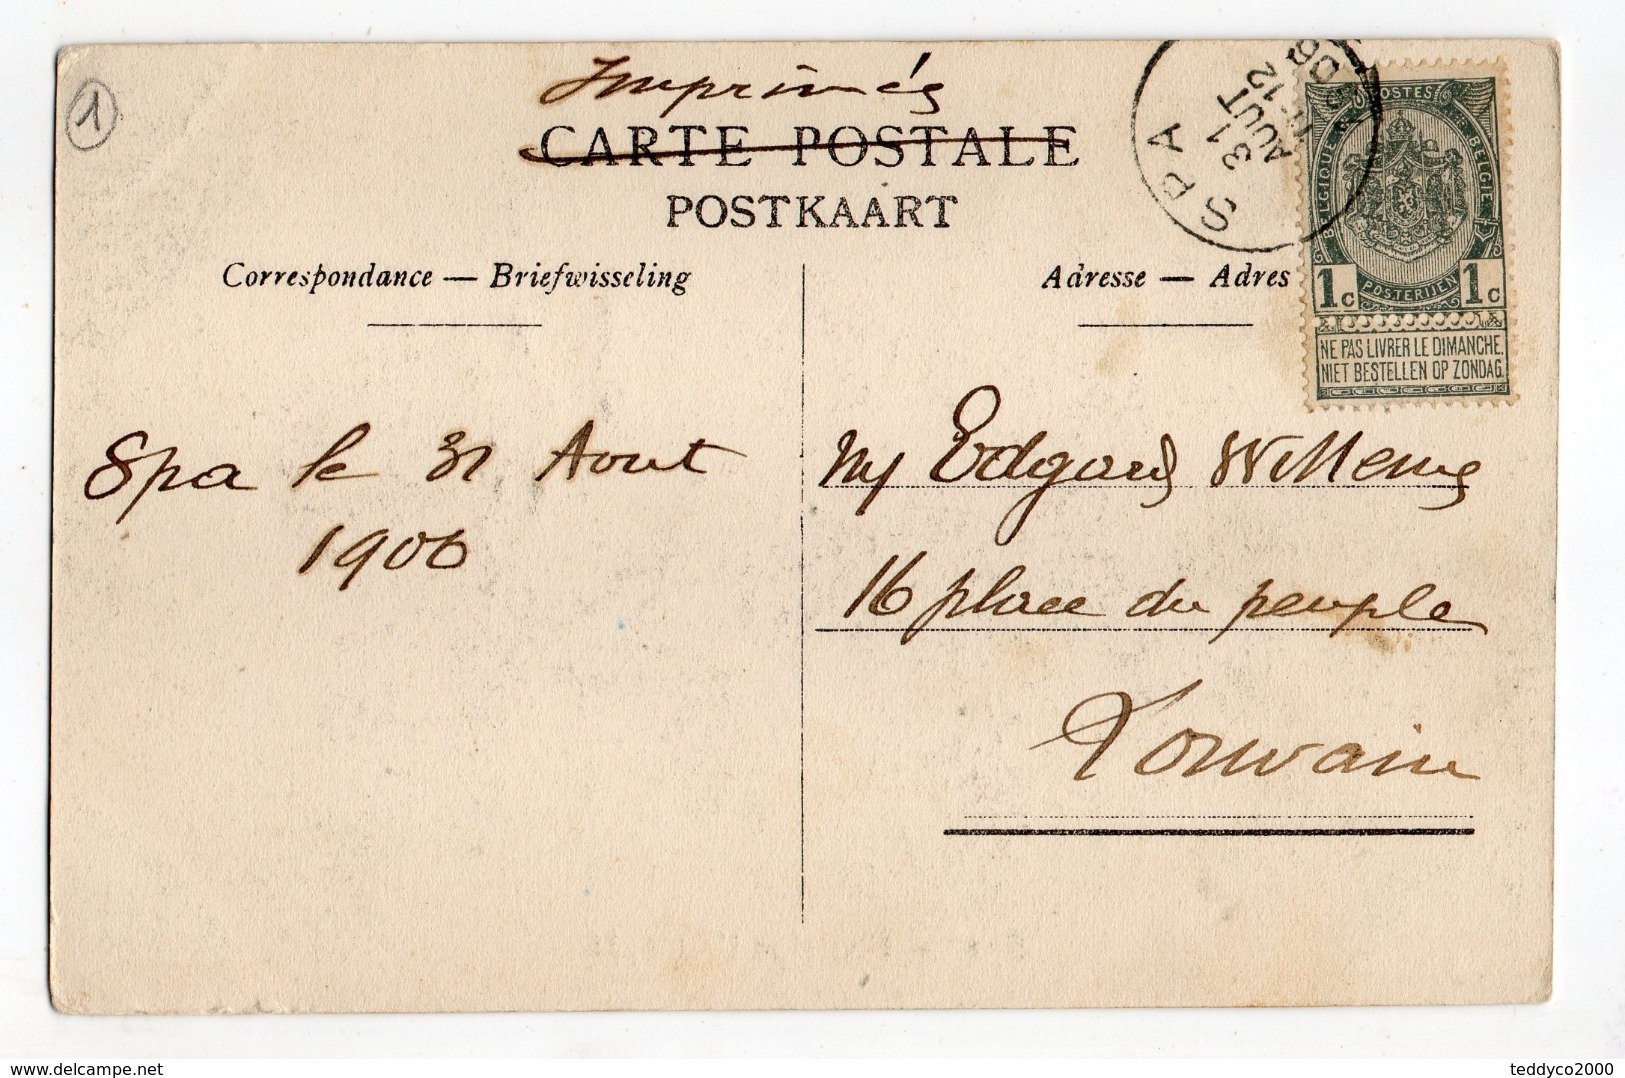 1
Imprimés
CARTE POSTALE
POSTKAART
Correspondance — Briefwisseling
Adresse — Adres
SPA
31
AOUT
12
POSTES
BELGIQUE
BELGIE
1c POSTERIJEN 1c
NE PAS LIVRER LE DIMANCHE.
NIET BESTELLEN OP ZONDAG.
Spa le 31 Aout
1906
Edgard Willems
16 place du peuple
Louvain
delcampe.net
teddyco2000